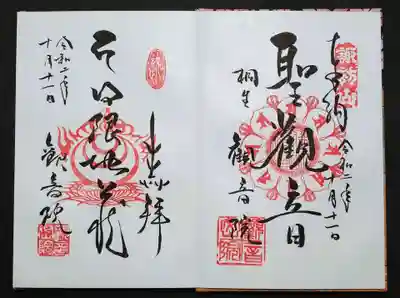 諏訪山
令和二年
十月十一日
聖觀音
桐生
觀音院
奉拝
日限地蔵
令和二年
十月十一日
觀音院